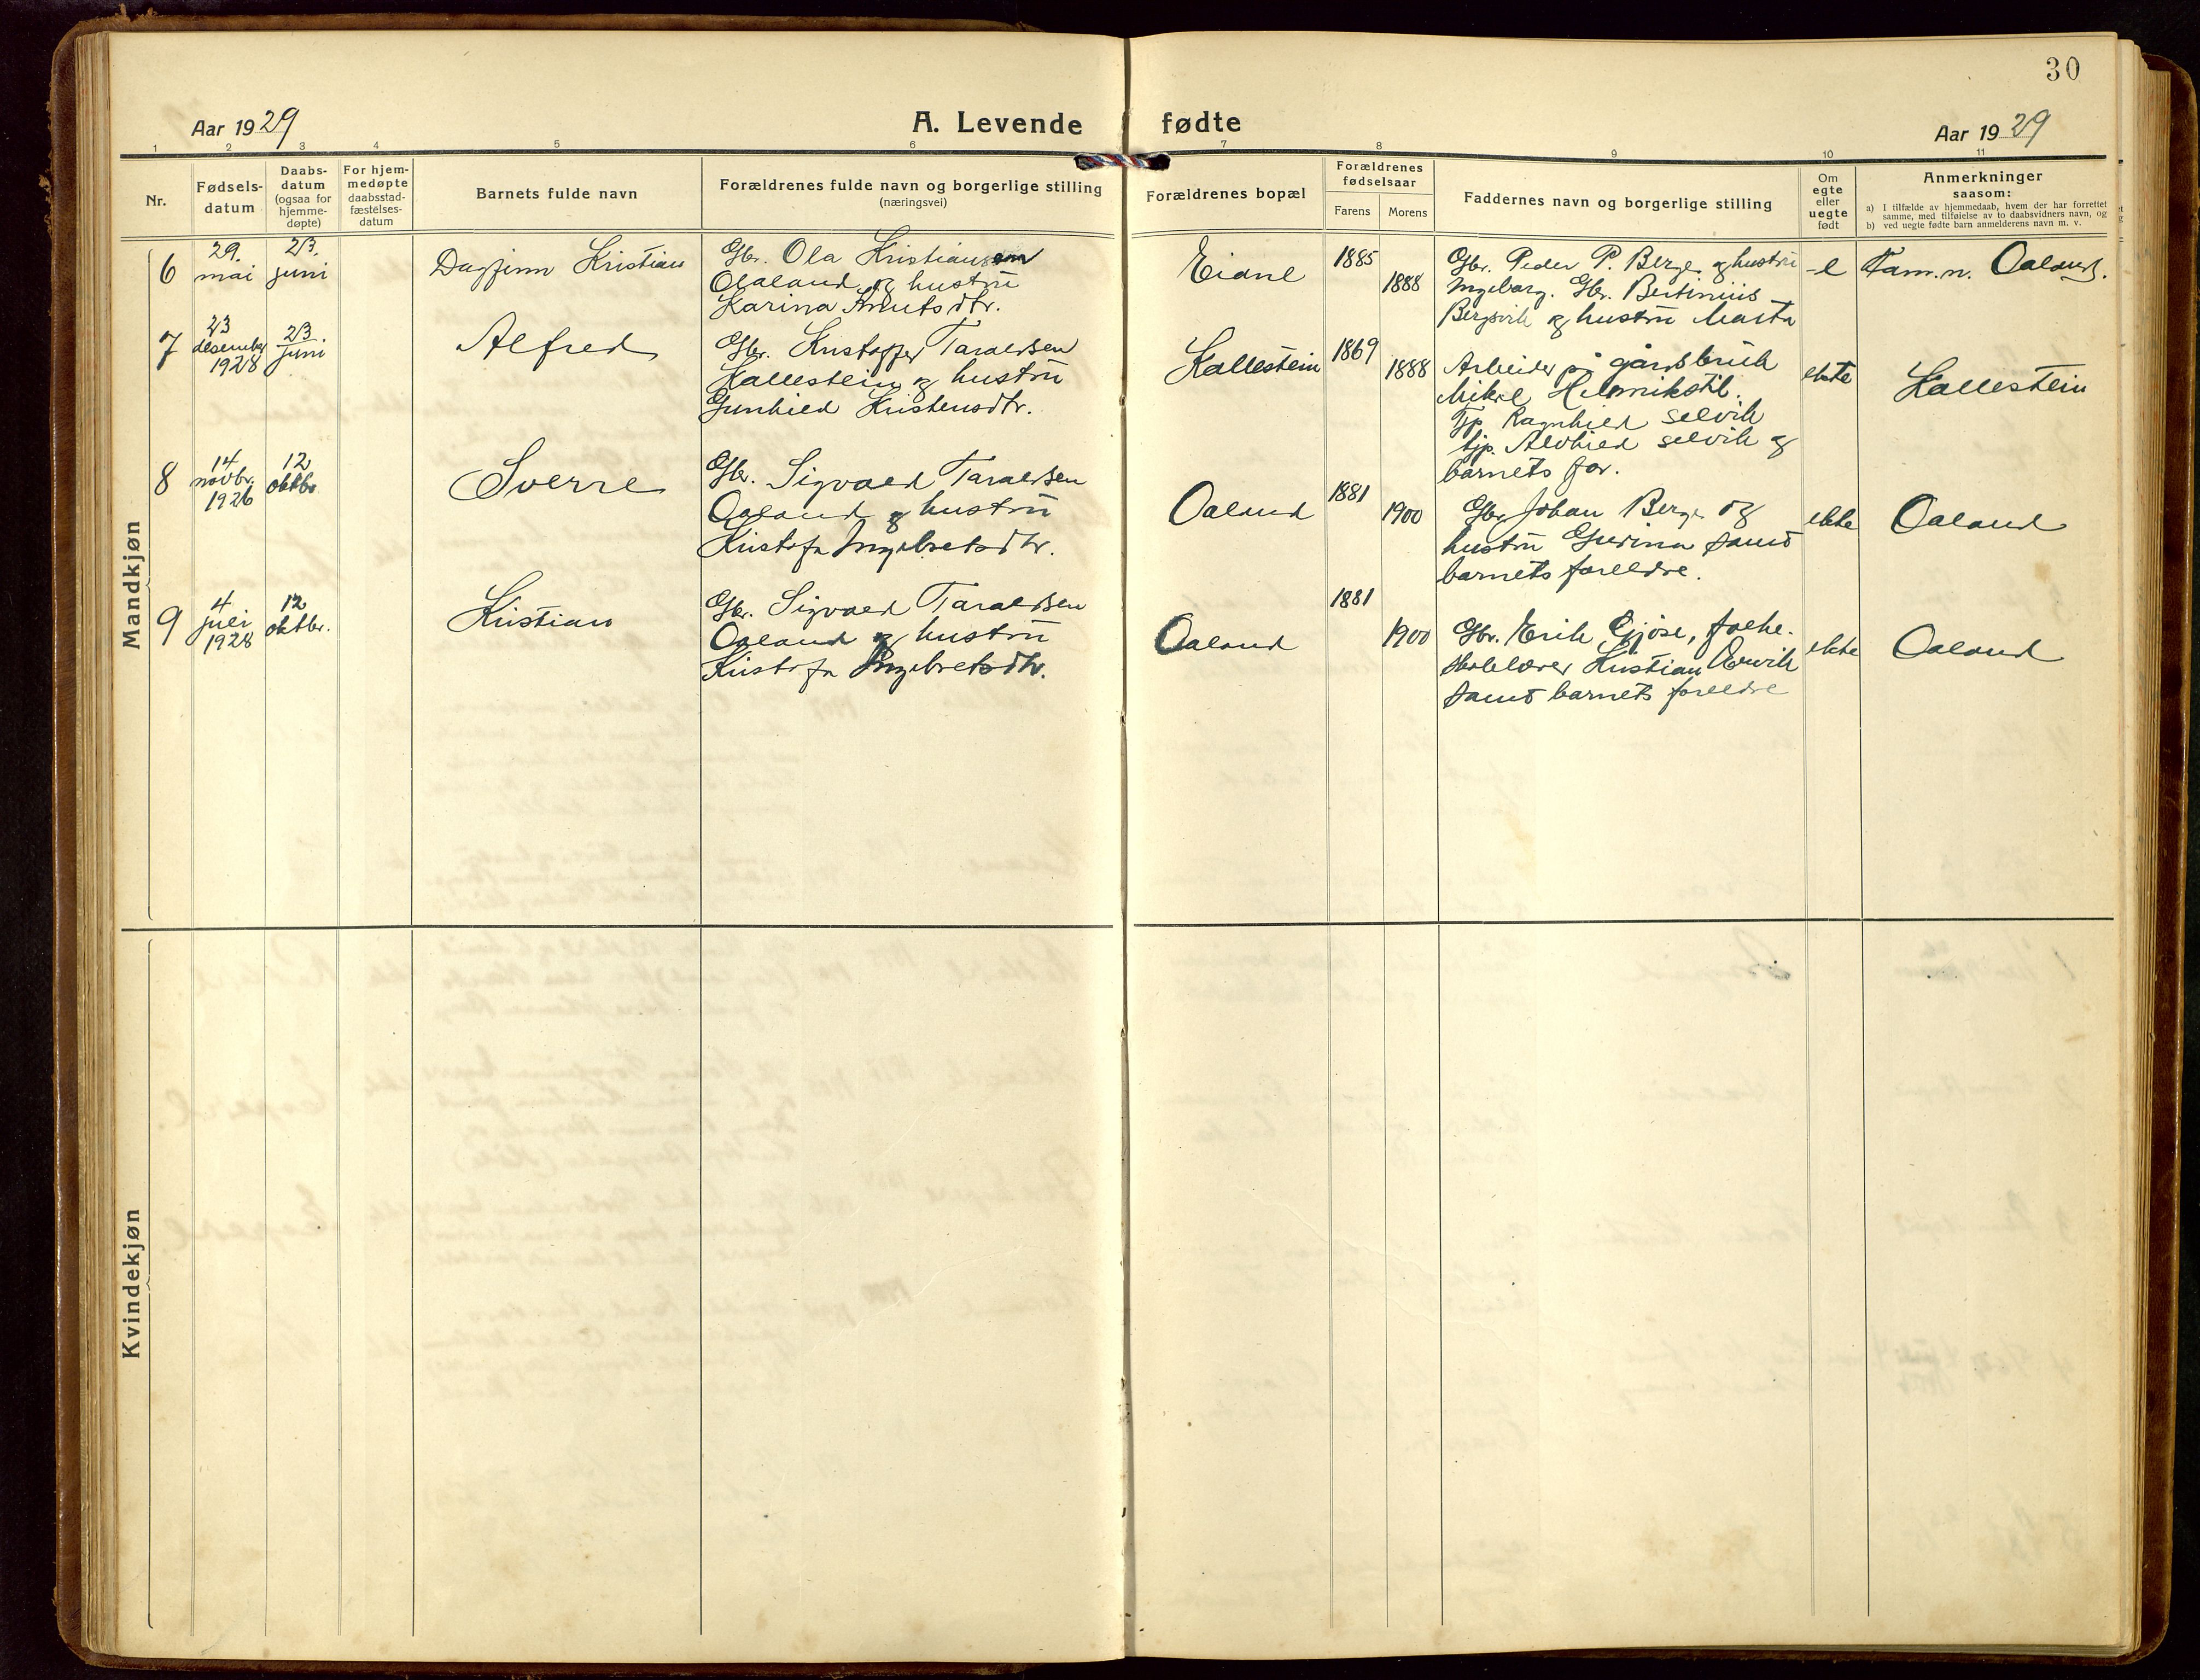 30
Aar 1929
A. Levende fødte
Aar 1929
1 2 3 4 5 6 7 8 9 10 11
Nr.
Fødsels-
datum
Daabs-
datum
(ogsaa for
hjemme-
døpte)
For hjem-
medøpte
daabsstad-
fæstelses-
datum
Barnets fulde navn
Forældrenes fulde navn og borgerlige stilling
(næringsvei)
Forældrenes bopæl
Forældrenes
fødselsaar
Farens
Morens
Faddernes navn og borgerlige stilling
Om
egte
eller
uegte
født
Anmerkninger
saasom:
a) I tilfælde av hjemmedaab, hvem der har forrettet
samme, med tilføielse av to daabsvidners navn, og
b) ved uegte fødte barn anmelderens navn m. v.
Mandkjøn
6
29.
mai
23.
juni
Dagfinn Kristian
Gbr. Ola Kristiansen
Oaland og hustru
Karina Knutsdtr.
Eiane
1885
1888
Gbr. Peder P. Berge og hustru
Ingeborg. Gbr. Bertinius
Bergsvik og hustru Marta
e
Fam.n. Oaland.
7
23
desember
1928
23.
juni
Alfred
Gbr. Kristoffer Taraldsen
Kallestein og hustru
Gunhild Kristensdtr.
Kallestein
1869
1888
Arbeider på gårdsbruk
Mikal Helmikstil.
Tjp. Ragnhild Selvik
tjp. Alvhild Selvik og
barnets far.
ekte
Kallestein
8
14
novbr.
1926
12
oktbr
Sverre
Gbr. Sigvald Taraldsen
Oaland og hustru
Kristofa Ingebretsdtr.
Oaland
1881
1900
Gbr. Johan Berge og
hustru Gurina samt
barnets foreldre.
ekte
Oaland
9
4
juli
1928
12
oktbr.
Kristian
Gbr. Sigvald Taraldsen
Oaland og hustru
Kristofa Ingebretsdtr.
Oaland
1881
1900
Gbr. Erik Gjøse, folke-
skolelærer Kristian Rørvik
samt barnets foreldre
ekte
Oaland
Kvindekjøn